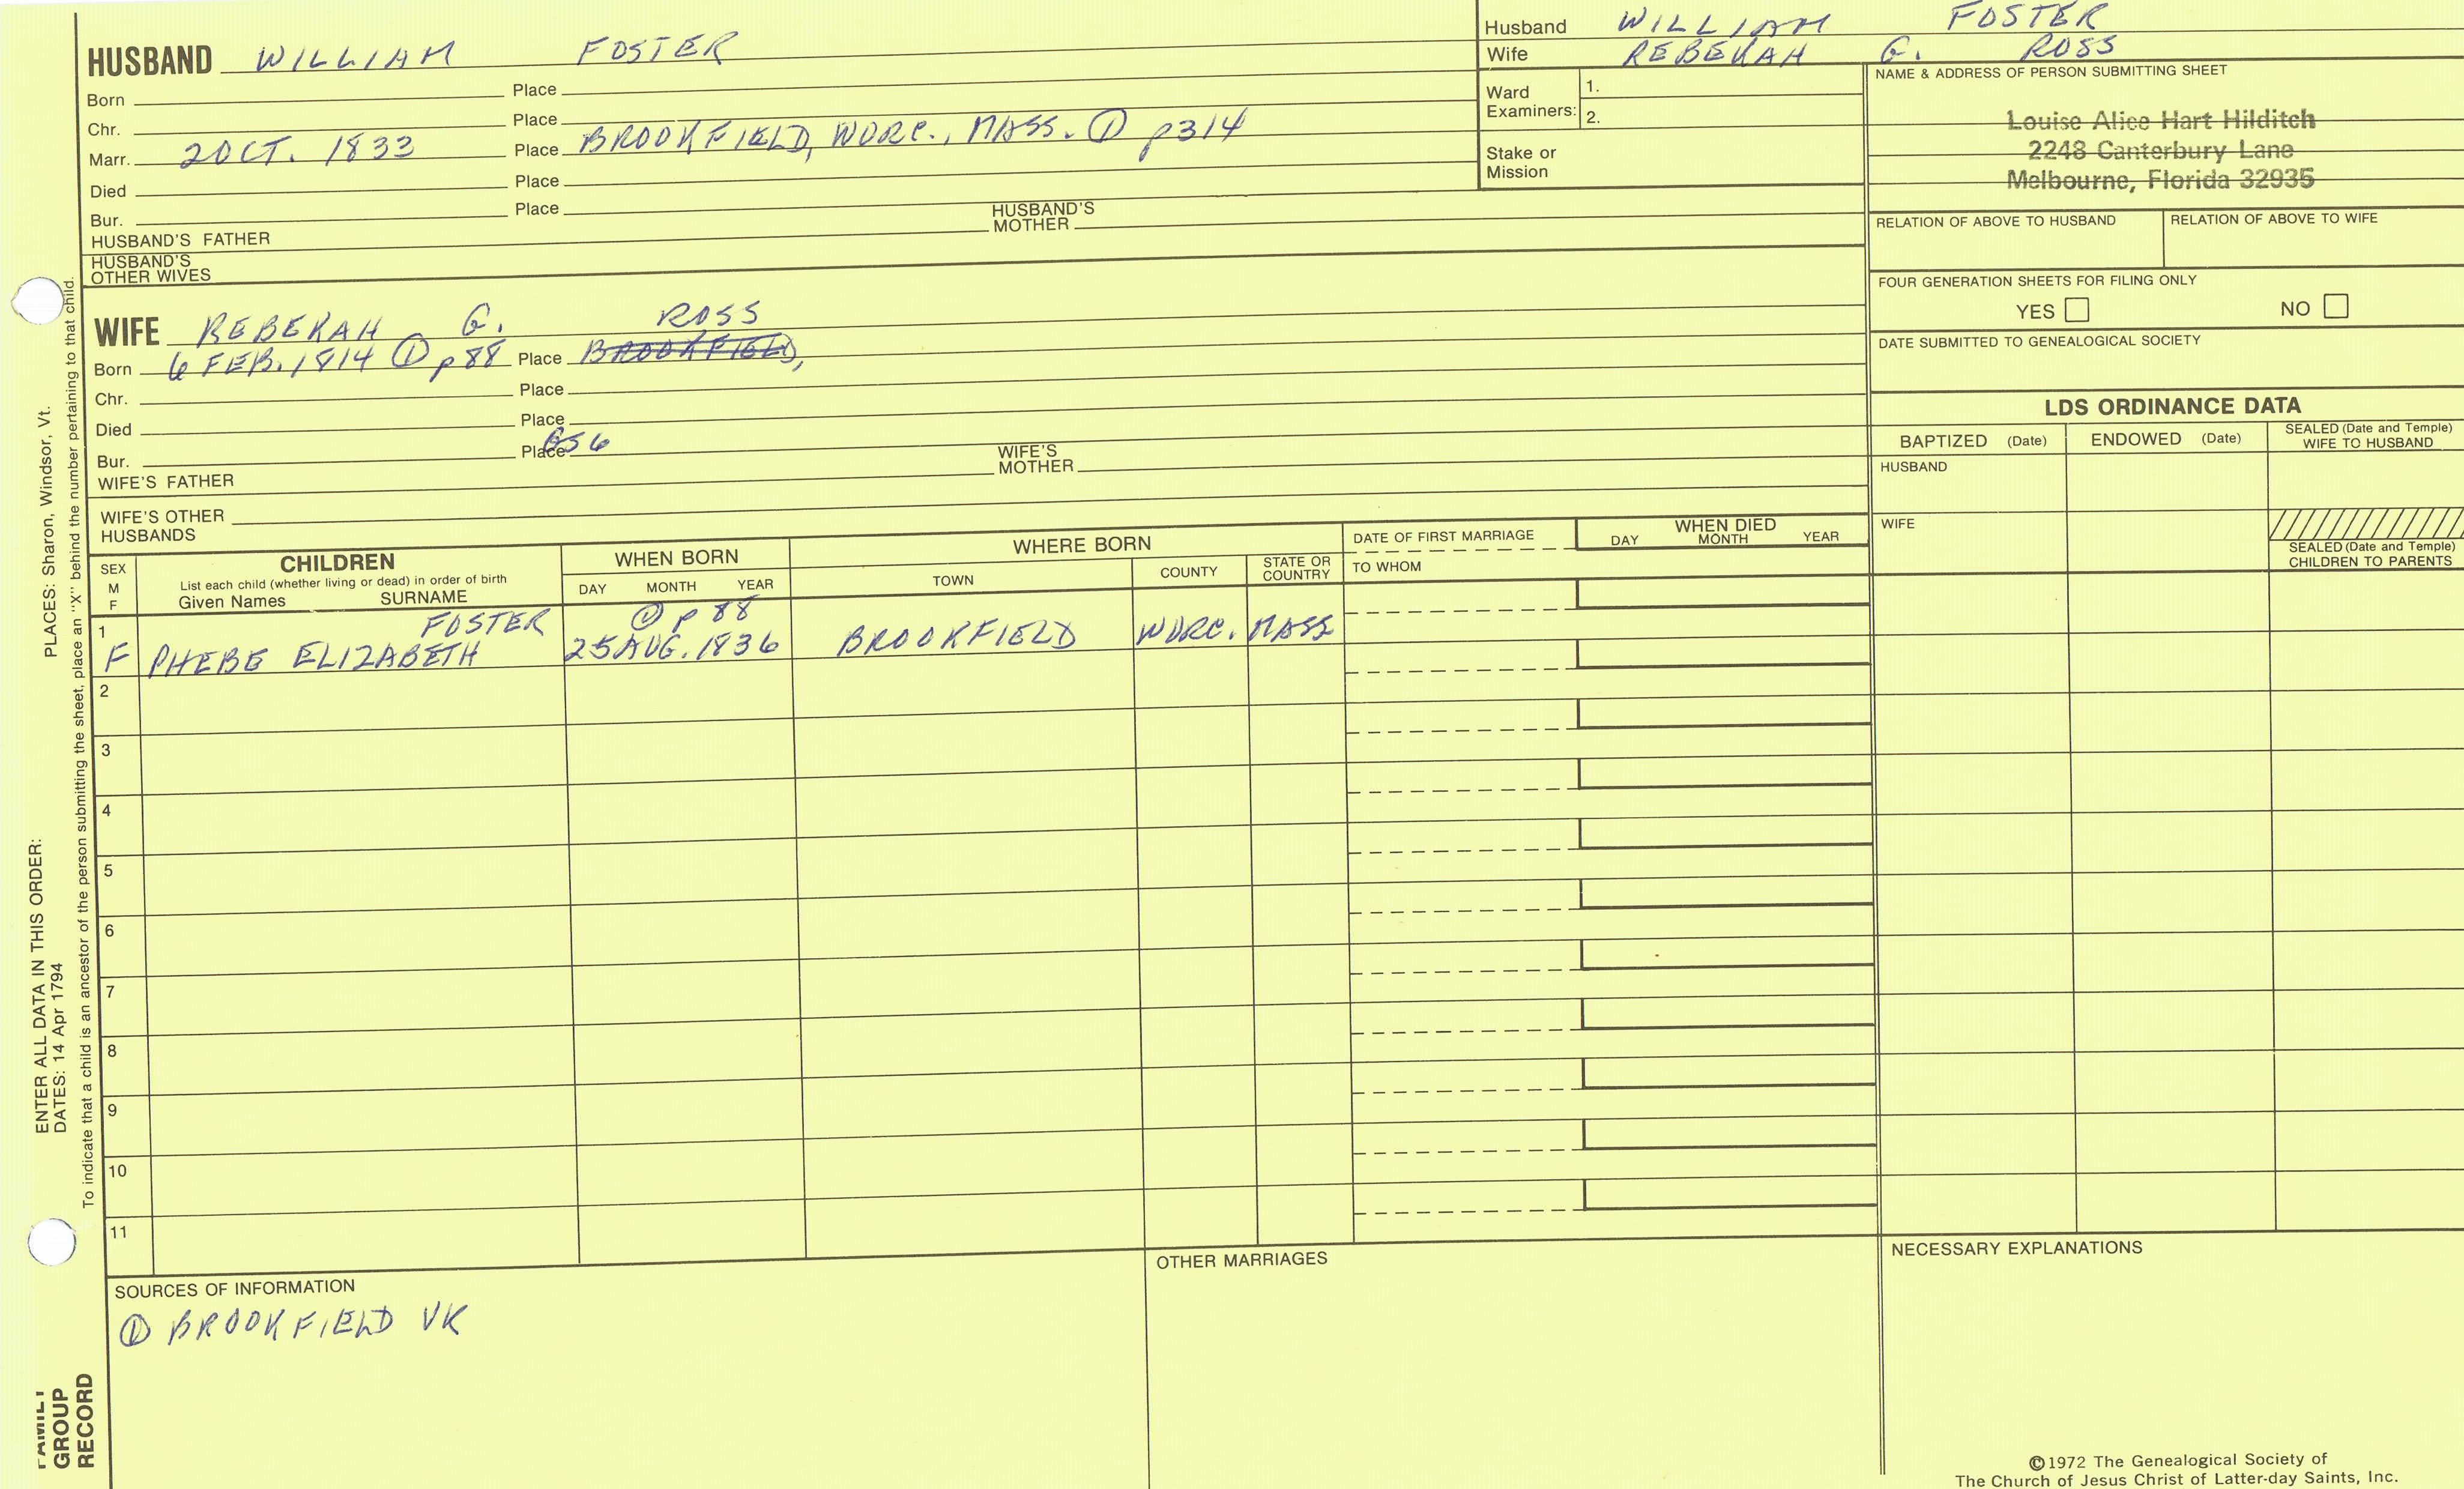 HUSBAND WILLIAM FOSTER
Born Place
Chr. Place
Marr. 2 OCT. 1833 Place BROOKFIELD, WORC., MASS. ① p314
Died Place
Bur. Place
HUSBAND'S FATHER HUSBAND'S MOTHER
HUSBAND'S OTHER WIVES
WIFE REBEKAH G. ROSS
Born 6 FEB. 1814 ① p88 Place BROOKFIELD,
Chr. Place
Died Place
Bur. Place
WIFE'S FATHER WIFE'S MOTHER
WIFE'S OTHER HUSBANDS
Husband WILLIAM FOSTER
Wife REBEKAH G. ROSS
Ward Examiners: 1.
2.
Stake or Mission
NAME & ADDRESS OF PERSON SUBMITTING SHEET
Louise Alice Hart Hilditch
2248 Canterbury Lane
Melbourne, Florida 32935
RELATION OF ABOVE TO HUSBAND RELATION OF ABOVE TO WIFE
FOUR GENERATION SHEETS FOR FILING ONLY
YES NO
DATE SUBMITTED TO GENEALOGICAL SOCIETY
LDS ORDINANCE DATA
BAPTIZED (Date) ENDOWED (Date) SEALED (Date and Temple) WIFE TO HUSBAND
HUSBAND
WIFE
SEALED (Date and Temple) CHILDREN TO PARENTS
SEX M F
CHILDREN
List each child (whether living or dead) in order of birth
Given Names SURNAME
WHEN BORN
DAY MONTH YEAR
WHERE BORN
TOWN COUNTY STATE OR COUNTRY
DATE OF FIRST MARRIAGE
TO WHOM
WHEN DIED
DAY MONTH YEAR
1 FOSTER ① p 88
F PHEBE ELIZABETH 25 AUG. 1836 BROOKFIELD WORC. MASS
2
3
4
5
6
7
8
9
10
11
SOURCES OF INFORMATION
① BROOKFIELD VR
OTHER MARRIAGES
NECESSARY EXPLANATIONS
©1972 The Genealogical Society of
The Church of Jesus Christ of Latter-day Saints, Inc.
ENTER ALL DATA IN THIS ORDER:
DATES: 14 Apr 1794 PLACES: Sharon, Windsor, Vt.
To indicate that a child is an ancestor of the person submitting the sheet, place an "X" behind the number pertaining to that child.
FAMILY
GROUP
RECORD